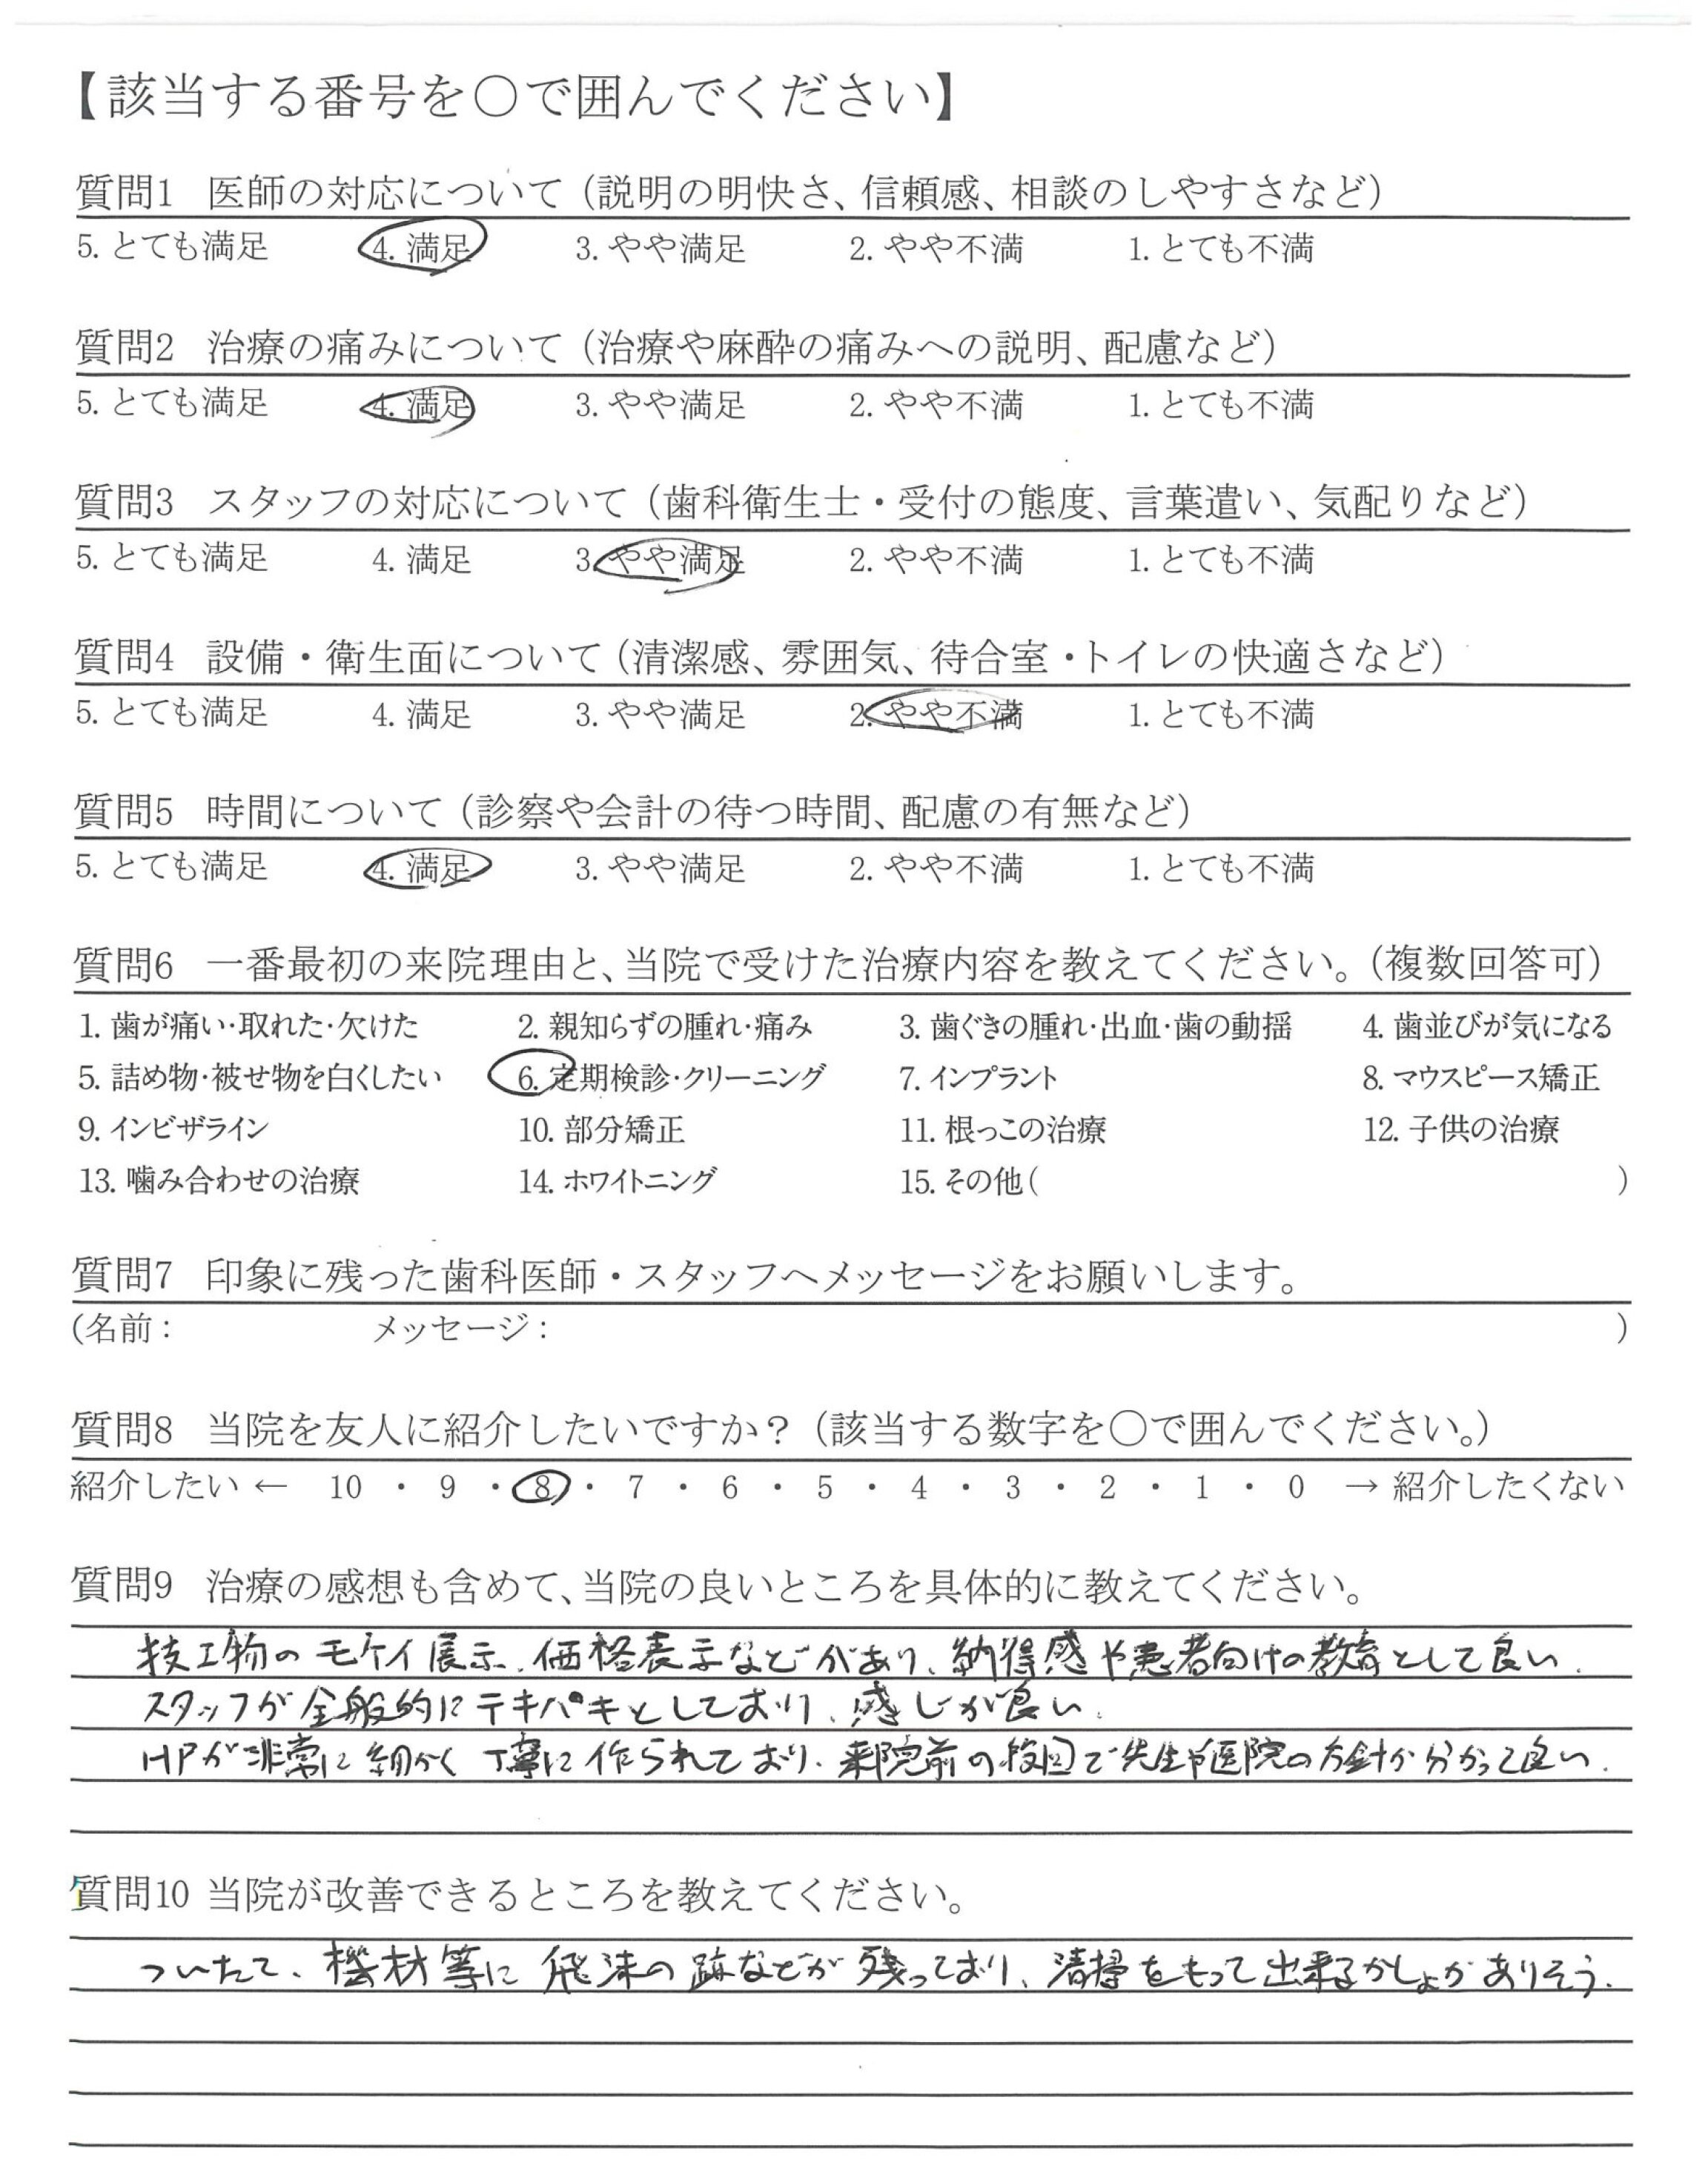 【該当する番号を○で囲んでください】
質問1 医師の対応について（説明の明快さ、信頼感、相談のしやすさなど）
5. とても満足 4. 満足 3. やや満足 2. やや不満 1. とても不満
質問2 治療の痛みについて（治療や麻酔の痛みへの説明、配慮など）
5. とても満足 4. 満足 3. やや満足 2. やや不満 1. とても不満
質問3 スタッフの対応について（歯科衛生士・受付の態度、言葉遣い、気配りなど）
5. とても満足 4. 満足 3. やや満足 2. やや不満 1. とても不満
質問4 設備・衛生面について（清潔感、雰囲気、待合室・トイレの快適さなど）
5. とても満足 4. 満足 3. やや満足 2. やや不満 1. とても不満
質問5 時間について（診察や会計の待つ時間、配慮の有無など）
5. とても満足 4. 満足 3. やや満足 2. やや不満 1. とても不満
質問6 一番最初の来院理由と、当院で受けた治療内容を教えてください。（複数回答可）
1. 歯が痛い・取れた・欠けた 2. 親知らずの腫れ・痛み 3. 歯ぐきの腫れ・出血・歯の動揺 4. 歯並びが気になる
5. 詰め物・被せ物を白くしたい 6. 定期検診・クリーニング 7. インプラント 8. マウスピース矯正
9. インビザライン 10. 部分矯正 11. 根っこの治療 12. 子供の治療
13. 噛み合わせの治療 14. ホワイトニング 15. その他（ ）
質問7 印象に残った歯科医師・スタッフへメッセージをお願いします。
（名前： メッセージ： ）
質問8 当院を友人に紹介したいですか？（該当する数字を○で囲んでください。）
紹介したい ← 10 ・ 9 ・ 8 ・ 7 ・ 6 ・ 5 ・ 4 ・ 3 ・ 2 ・ 1 ・ 0 → 紹介したくない
質問9 治療の感想も含めて、当院の良いところを具体的に教えてください。
技工物のモケイ展示、価格表示などがあり、納得感や患者向けの教育として良い。
スタッフが全般的にテキパキとしており、感じが良い。
HPが非常に細かく丁寧に作られており、来院前の段因で先生や医院の方針が分かって良い。
質問10 当院が改善できるところを教えてください。
ついたて、機材等に飛沫の跡などが残っており、清掃をもって出来るかしょがありそう。